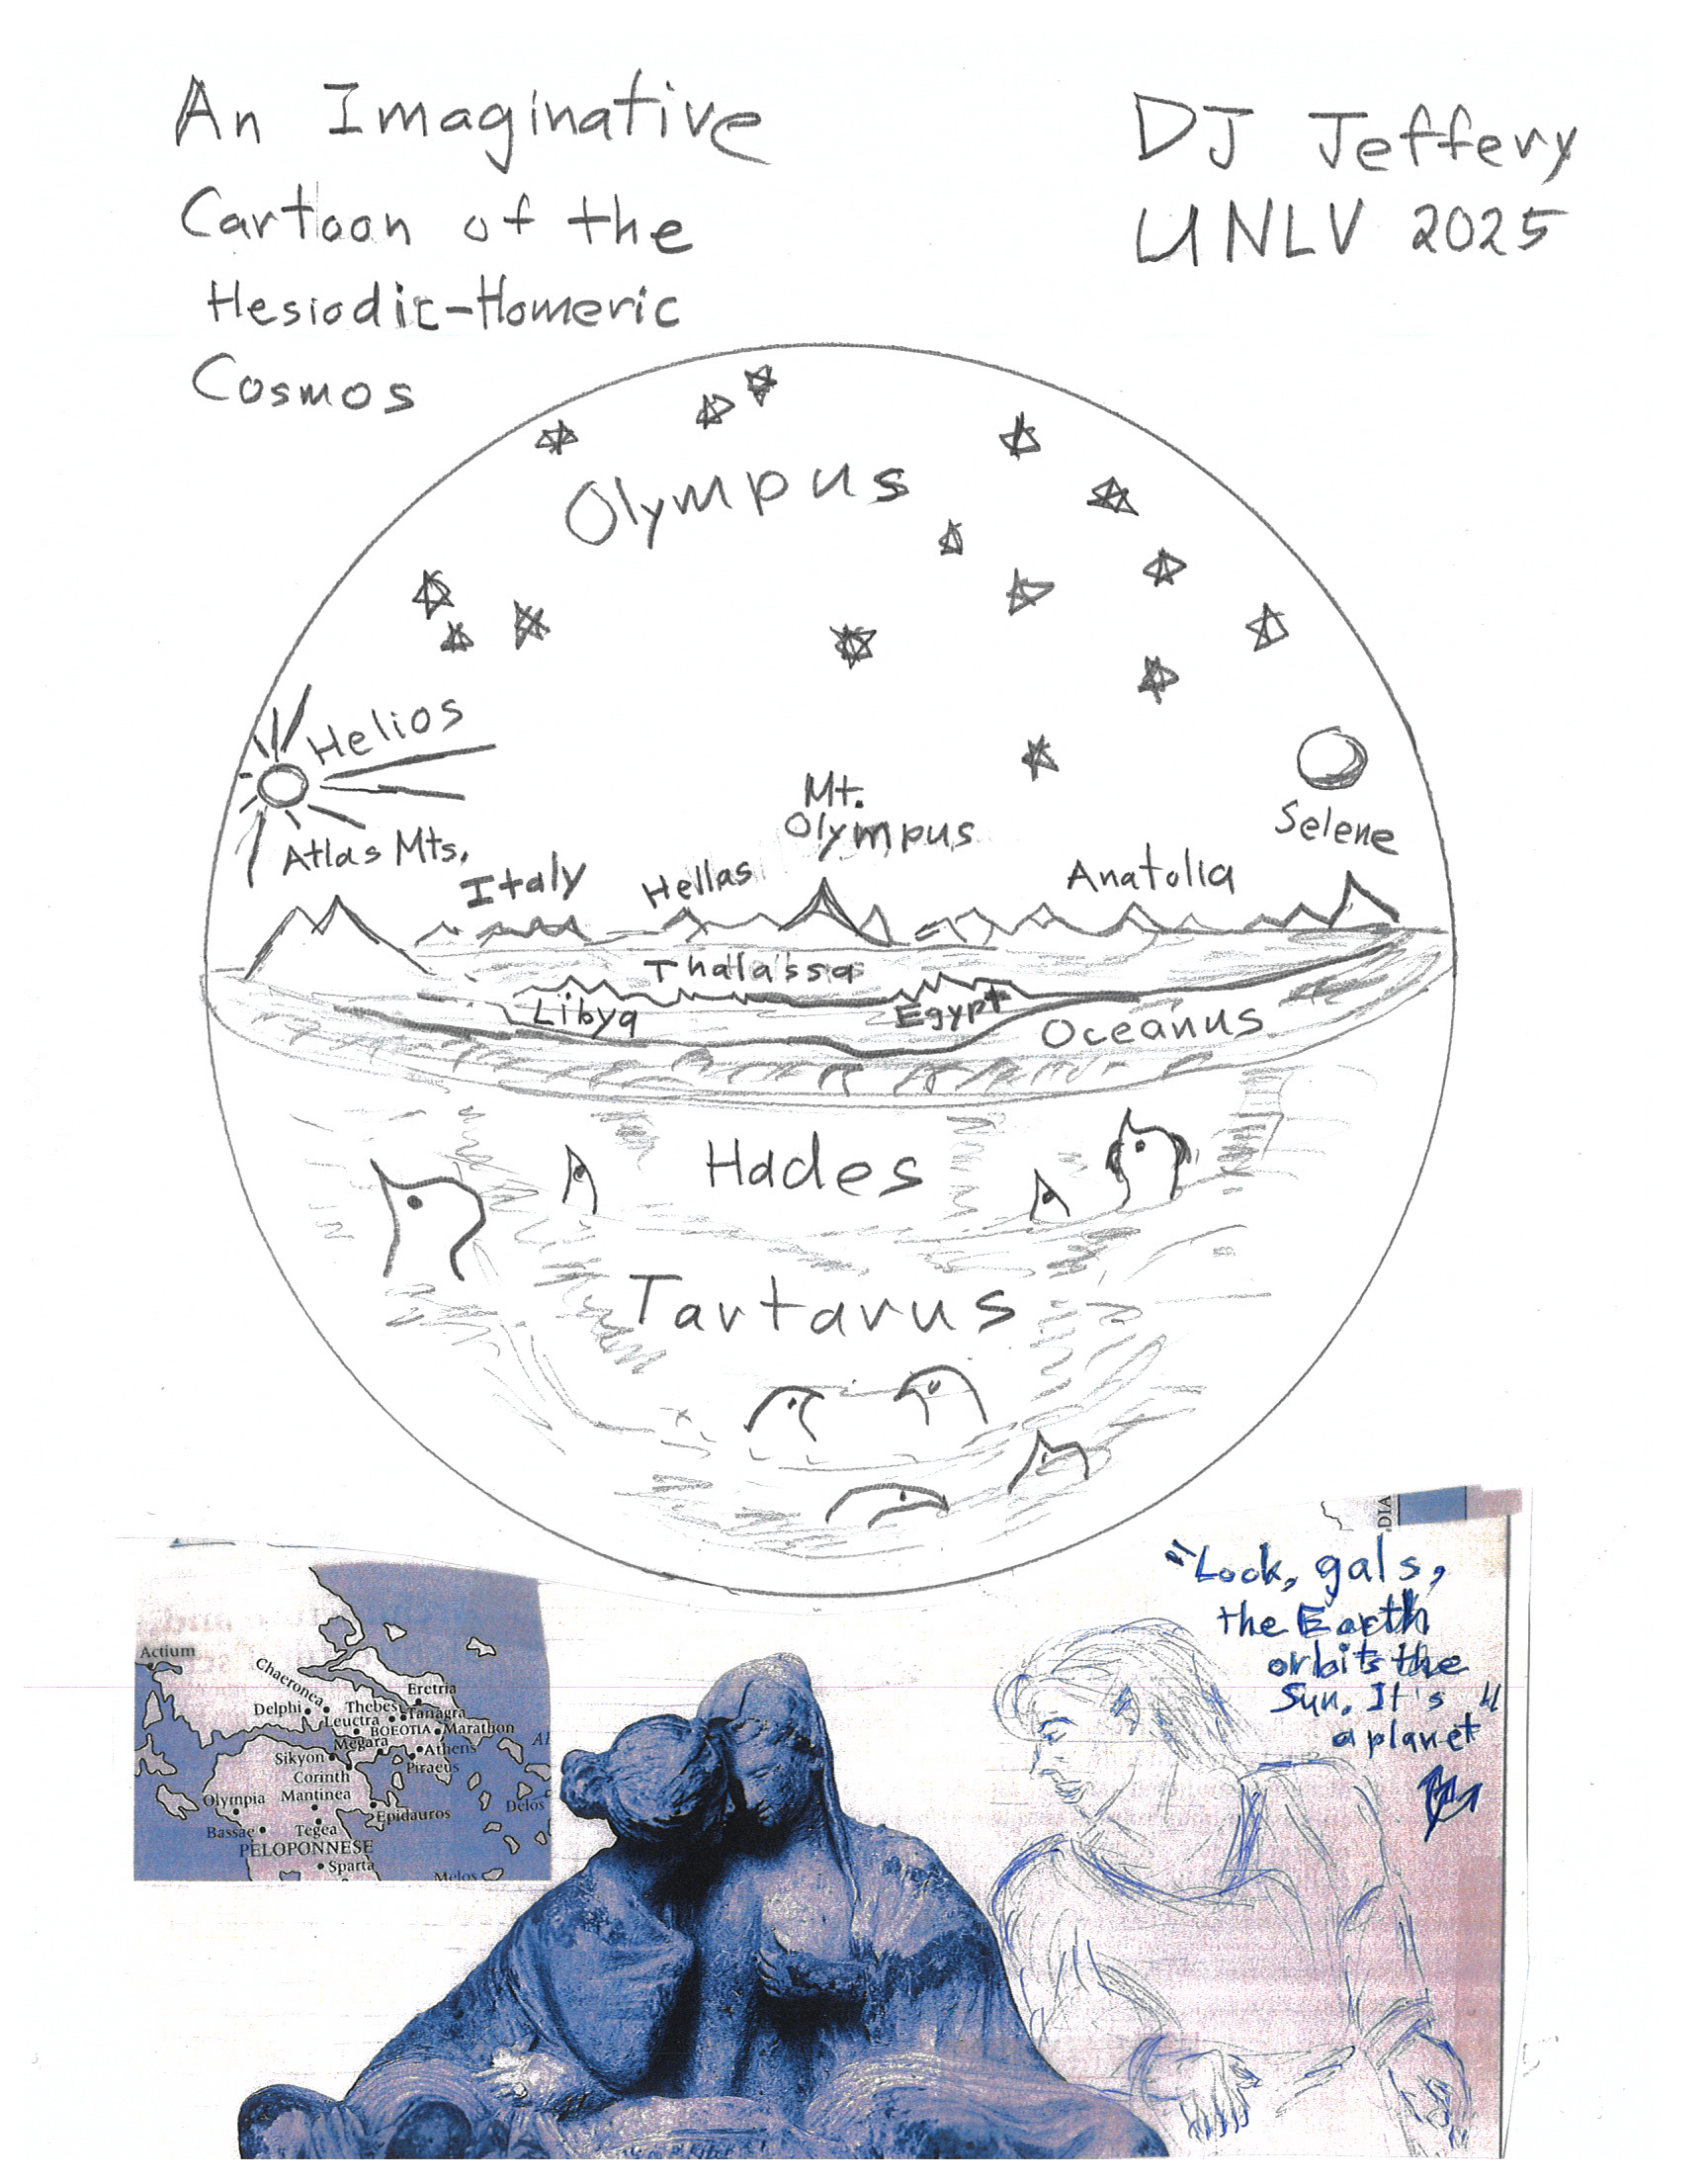 An Imaginative
Cartoon of the
Hesiodic-Homeric
Cosmos
DJ Jeffery
UNLV 2025
Olympus
Helios
Atlas Mts.
Italy
Hellas
Mt.
Olympus
Anatolia
Selene
Thalassa
Libya
Egypt
Oceanus
Hades
Tartarus
DIA
"Look, gals,
the Earth
orbits the
Sun. It's
a planet"
Actium
Chaeronea
Eretria
Delphi
Thebes
Tanagra
Leuctra
BOEOTIA
Marathon
Megara
Athens
Sikyon
Piraeus
Corinth
Olympia
Mantinea
Delos
Epidauros
Bassae
Tegea
PELOPONNESE
Sparta
Melos